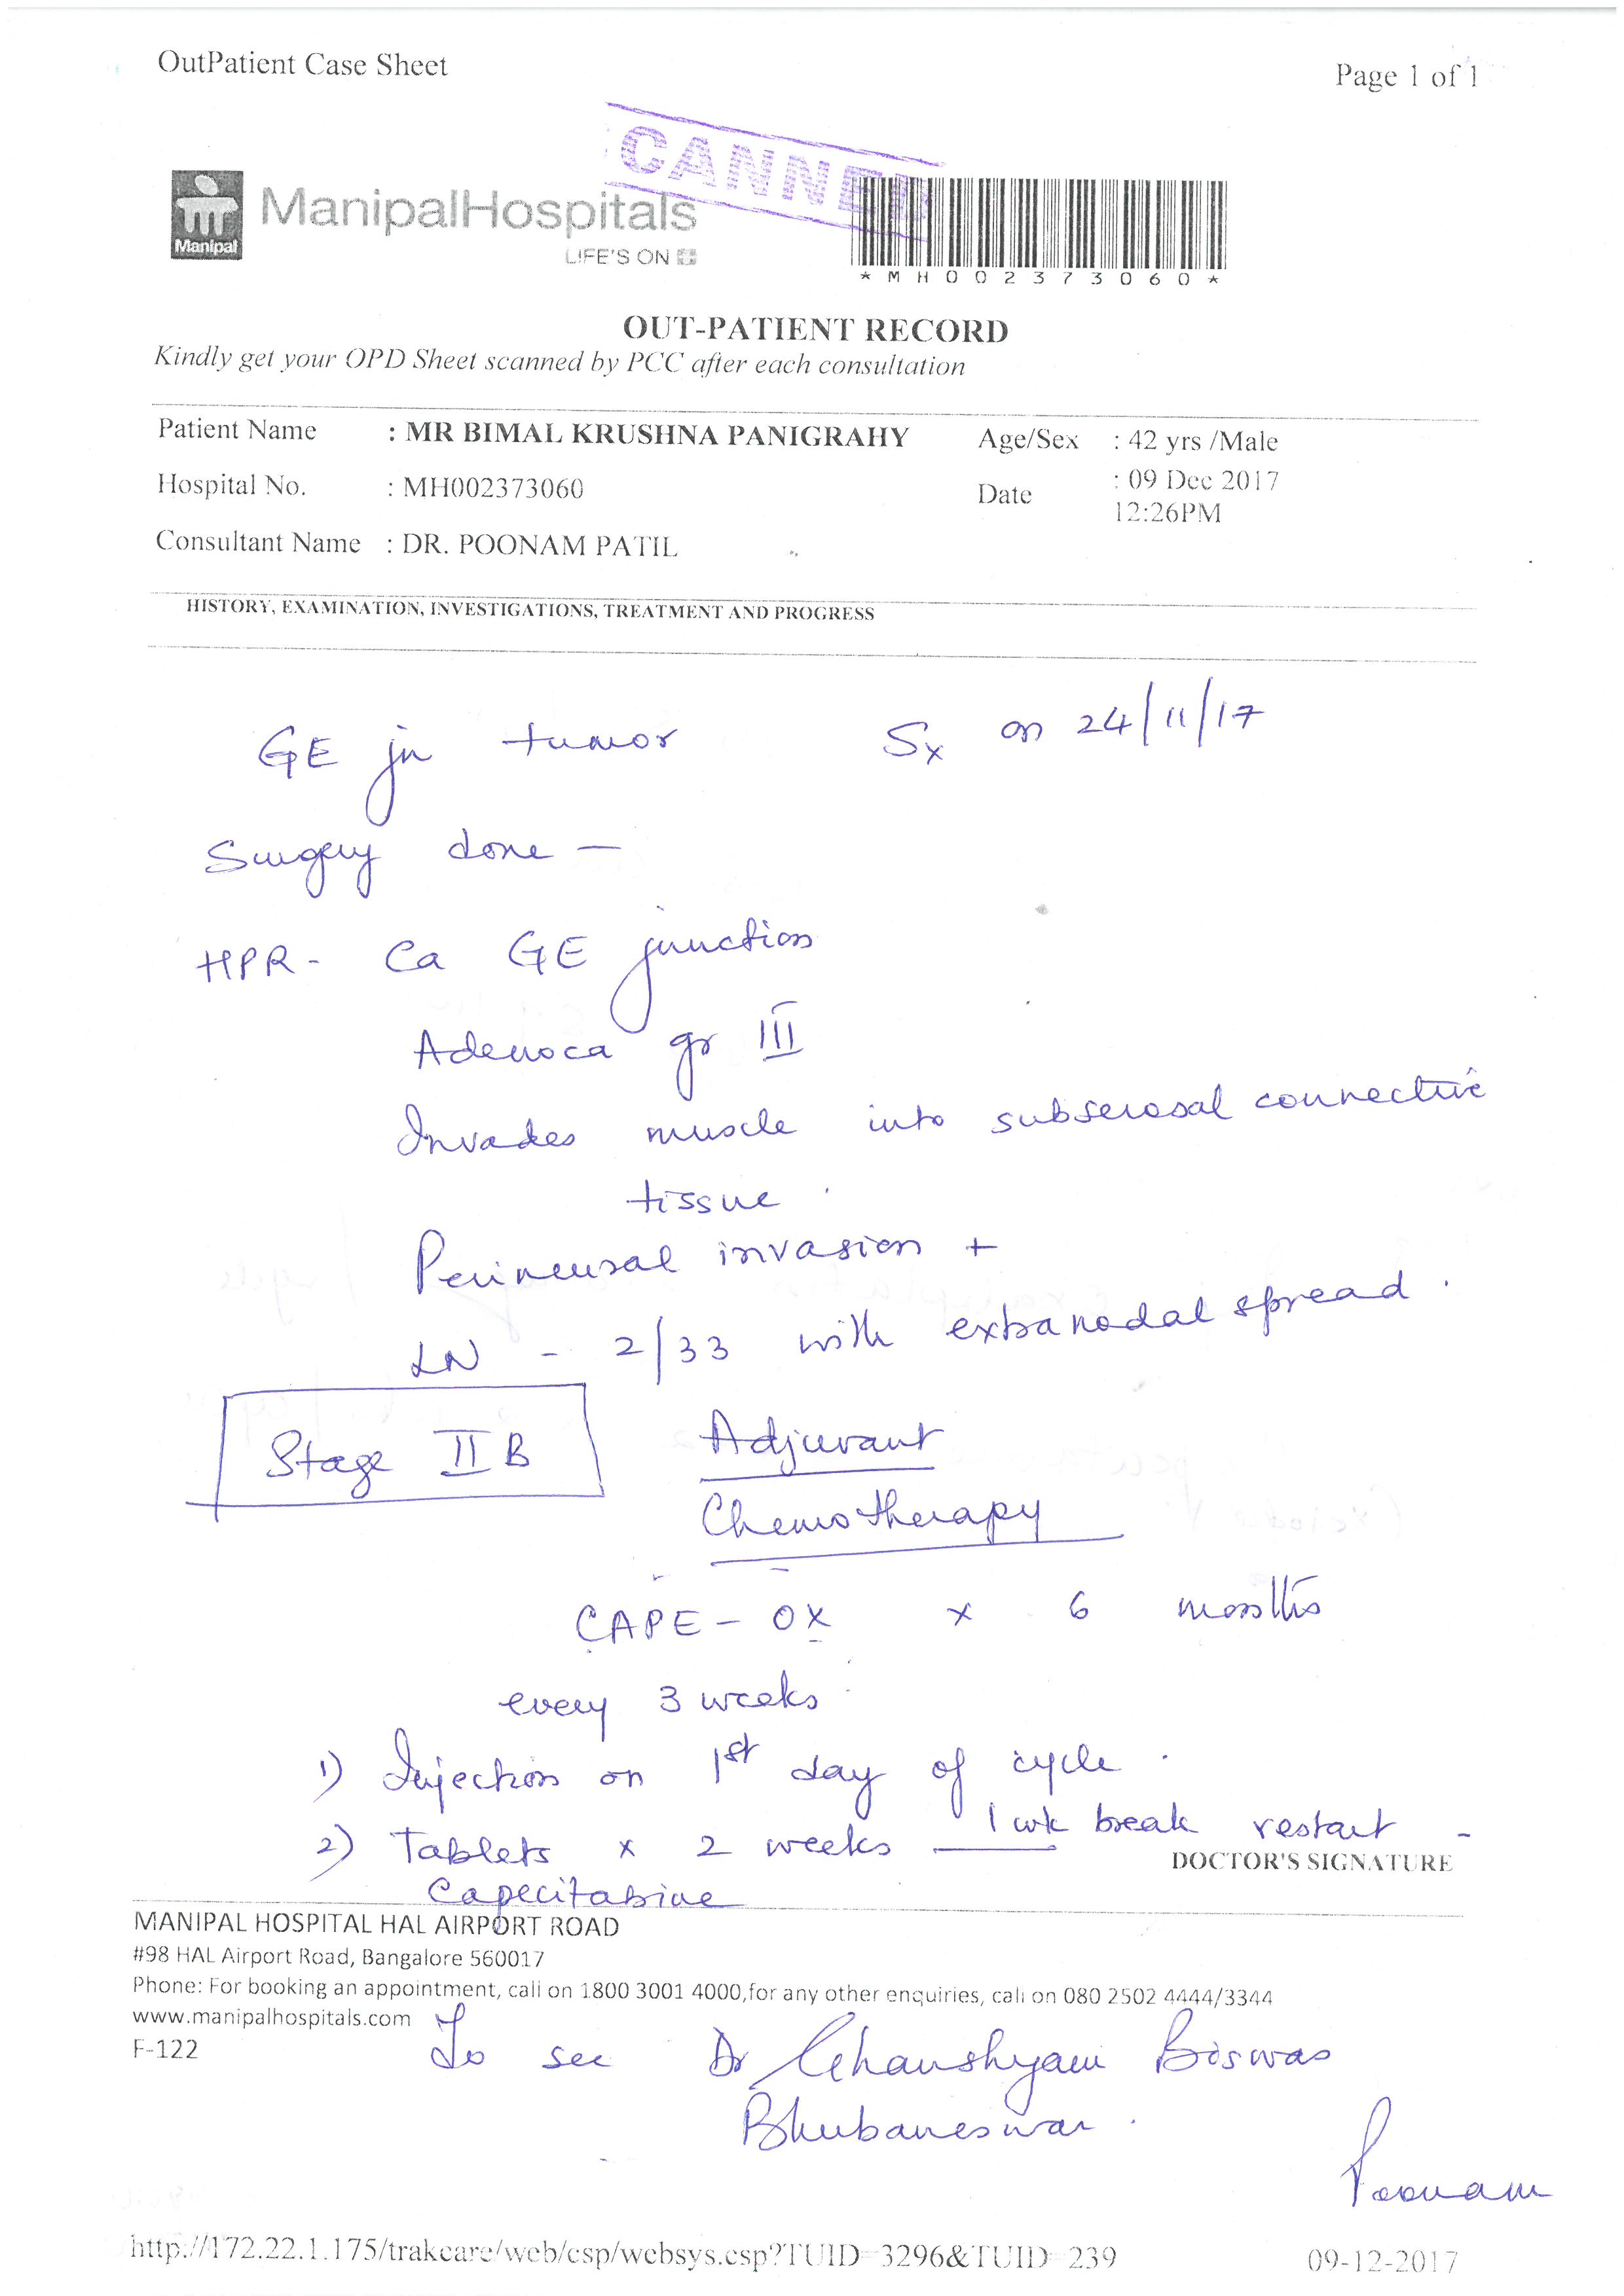 OutPatient Case Sheet
Page 1 of 1
CANNED
ManipalHospitals
LIFE'S ON
Manipal
*MH002373060*
OUT-PATIENT RECORD
Kindly get your OPD Sheet scanned by PCC after each consultation
Patient Name : MR BIMAL KRUSHNA PANIGRAHY Age/Sex : 42 yrs /Male
Hospital No. : MH002373060 Date : 09 Dec 2017
12:26PM
Consultant Name : DR. POONAM PATIL
HISTORY, EXAMINATION, INVESTIGATIONS, TREATMENT AND PROGRESS
GE jn tumor Sx on 24/11/17
Surgery done —
HPR - Ca GE junction
Adenoca gr III
Invades muscle into subserosal connective
tissue.
Perineural invasion +
LN - 2/33 with extranodal spread.
Stage II B Adjuvant
Chemotherapy
CAPE - OX x 6 months
every 3 weeks
1) Injection on 1st day of cycle.
2) Tablets x 2 weeks — 1 wk break restart -
DOCTOR'S SIGNATURE
Capecitabine
MANIPAL HOSPITAL HAL AIRPORT ROAD
#98 HAL Airport Road, Bangalore 560017
Phone: For booking an appointment, call on 1800 3001 4000,for any other enquiries, call on 080 2502 4444/3344
www.manipalhospitals.com
F-122
To see Dr Ghanshyam Biswas
Bhubaneswar.
Poonam
http://172.22.1.175/trakcare/web/csp/websys.csp?TUID=3296&TUID=239 09-12-2017